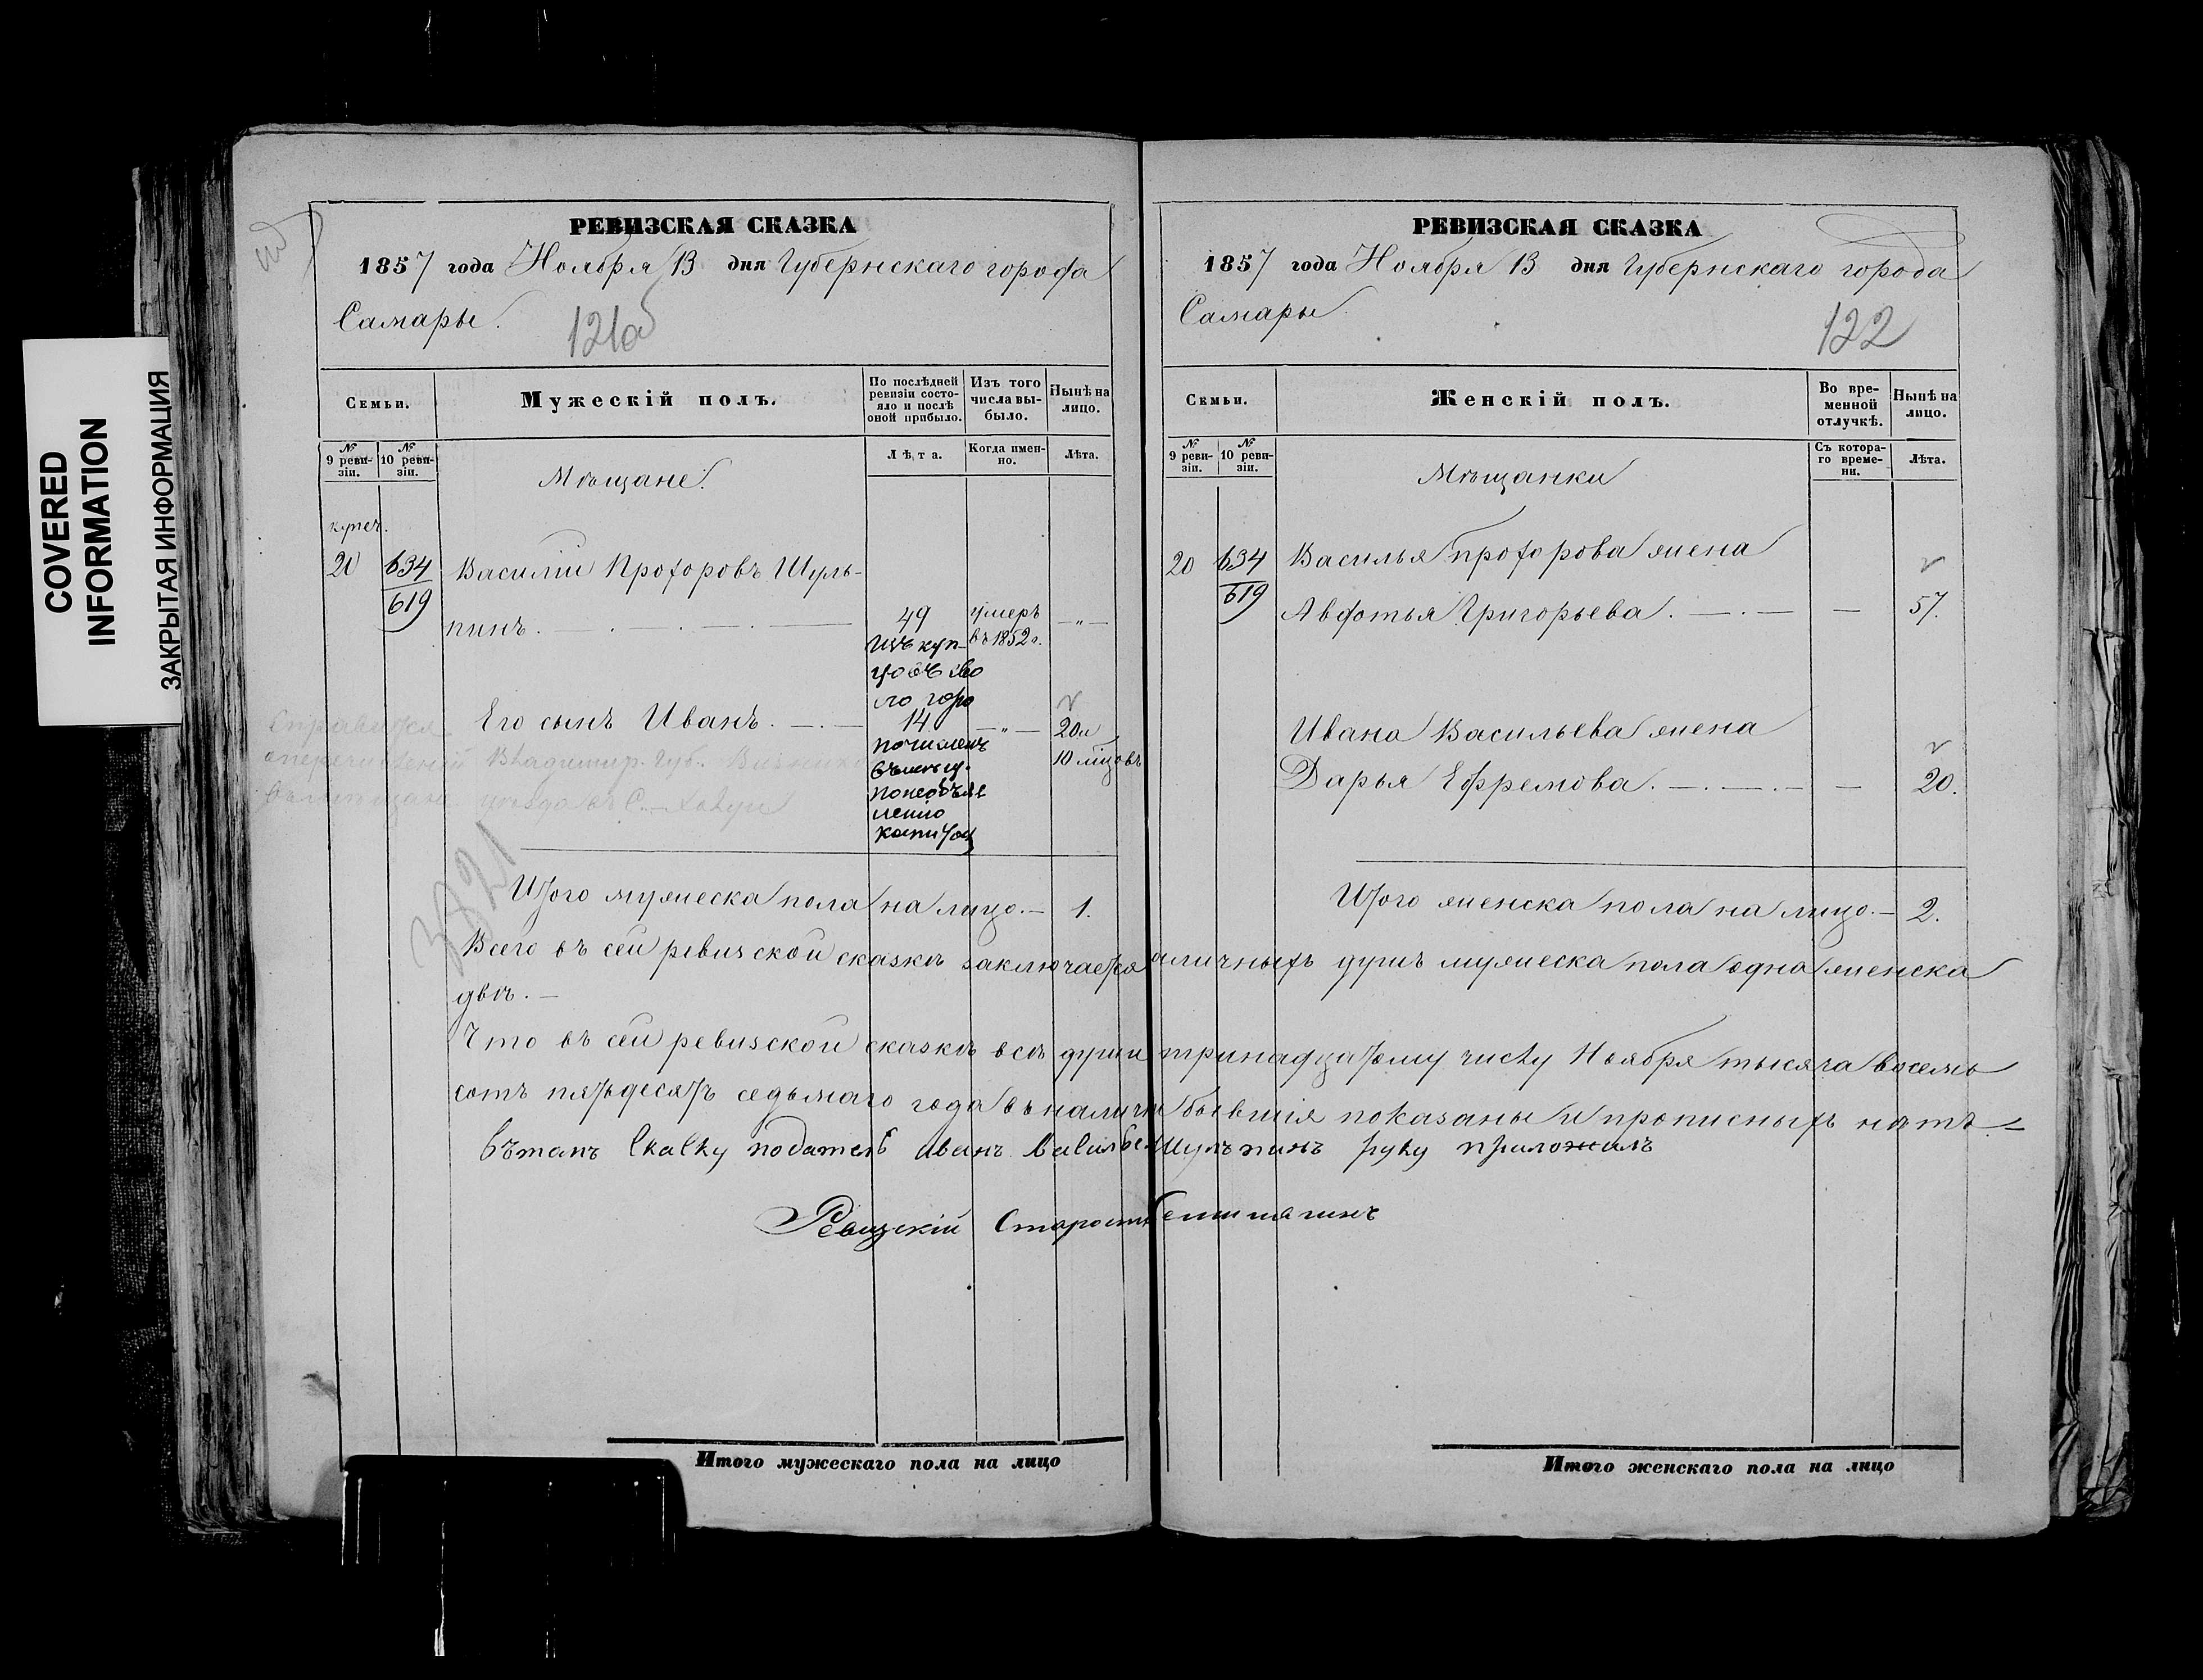 COVERED
INFORMATION
ЗАКРЫТАЯ ИНФОРМАЦИЯ
РЕВИЗСКАЯ СКАЗКА
1857 года Ноября 13 дня Губернскаго города
Самары.
121об
Семьи.
Мужескій полъ.
По послѣдней ревизіи состояло и послѣ оной прибыло.
Изъ того числа выбыло.
Нынѣ на лицо.
№ 9 ревизіи.
№ 10 ревизіи.
Лѣта.
Когда именно.
Лѣта.
Мѣщане.
купеч.
20 634 Василій Прохоровъ Шуль-
619
пинъ. 49 умеръ — „ —
изъ куп- въ 1852 г.
цовъ сво
го горо
Его сынъ Иванъ. 14 — „ — 20 и
причисленъ 10 мѣсцовъ
въ мѣщ.
по необъяв
ленію
капитала
Справится
Владимир. Губ.
3821
Итого мужеска пола на лицо. — 1.
РЕВИЗСКАЯ СКАЗКА
1857 года Ноября 13 дня Губернскаго города
Самары
122
Семьи.
Женскій полъ.
Во временной отлучкѣ.
Нынѣ на лицо.
№ 9 ревизіи.
№ 10 ревизіи.
Съ котораго времени.
Лѣта.
Мѣщанки
20 634 Василья Прохорова жена
619 Авдотья Григорьева. — . — — 57.
Ивана Васильева жена
Дарья Ефремова. — . — . — — 20.
Итого женска пола на лицо. — 2.
Всего въ сей ревизской сказкѣ заключается наличныхъ душъ мужеска пола одна женска
двѣ. —
Что въ сей ревизской сказкѣ всѣ души тринадцатому числу Ноября тысяча восемь
сотъ пятьдесятъ седьмаго года въ наличіи бывшія показаны и прописныхъ нѣтъ —
Иванъ Васильевъ Шульпинъ руку приложилъ
Ревизскій Староста
Итого мужескаго пола на лицо
Итого женскаго пола на лицо